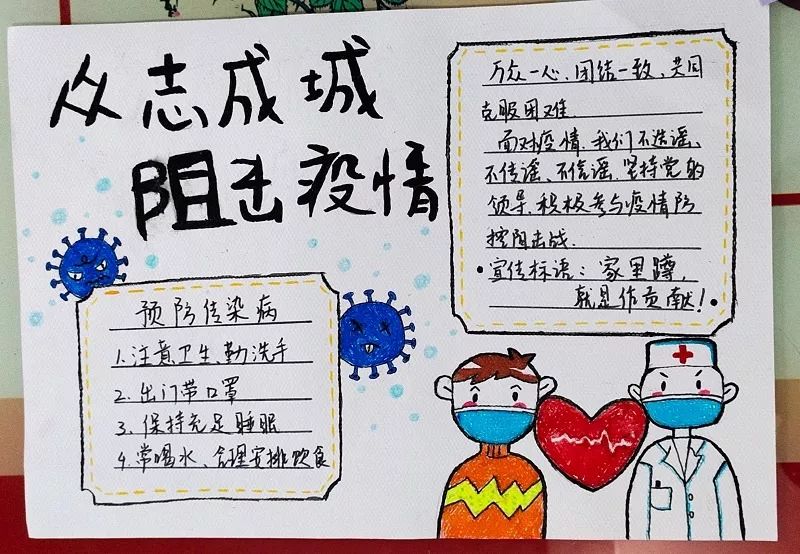 众志成城
阻击疫情
万众一心、团结一致、共同
克服困难.
面对疫情.我们不造谣、
不传谣、不信谣.坚持党的
领导.积极参与疫情防
控阻击战.
•宣传标语：家里蹲,
就是作贡献！•
预防传染病
1.注意卫生、勤洗手
2.出门带口罩
3.保持充足睡眠
4.常喝水、合理安排饮食